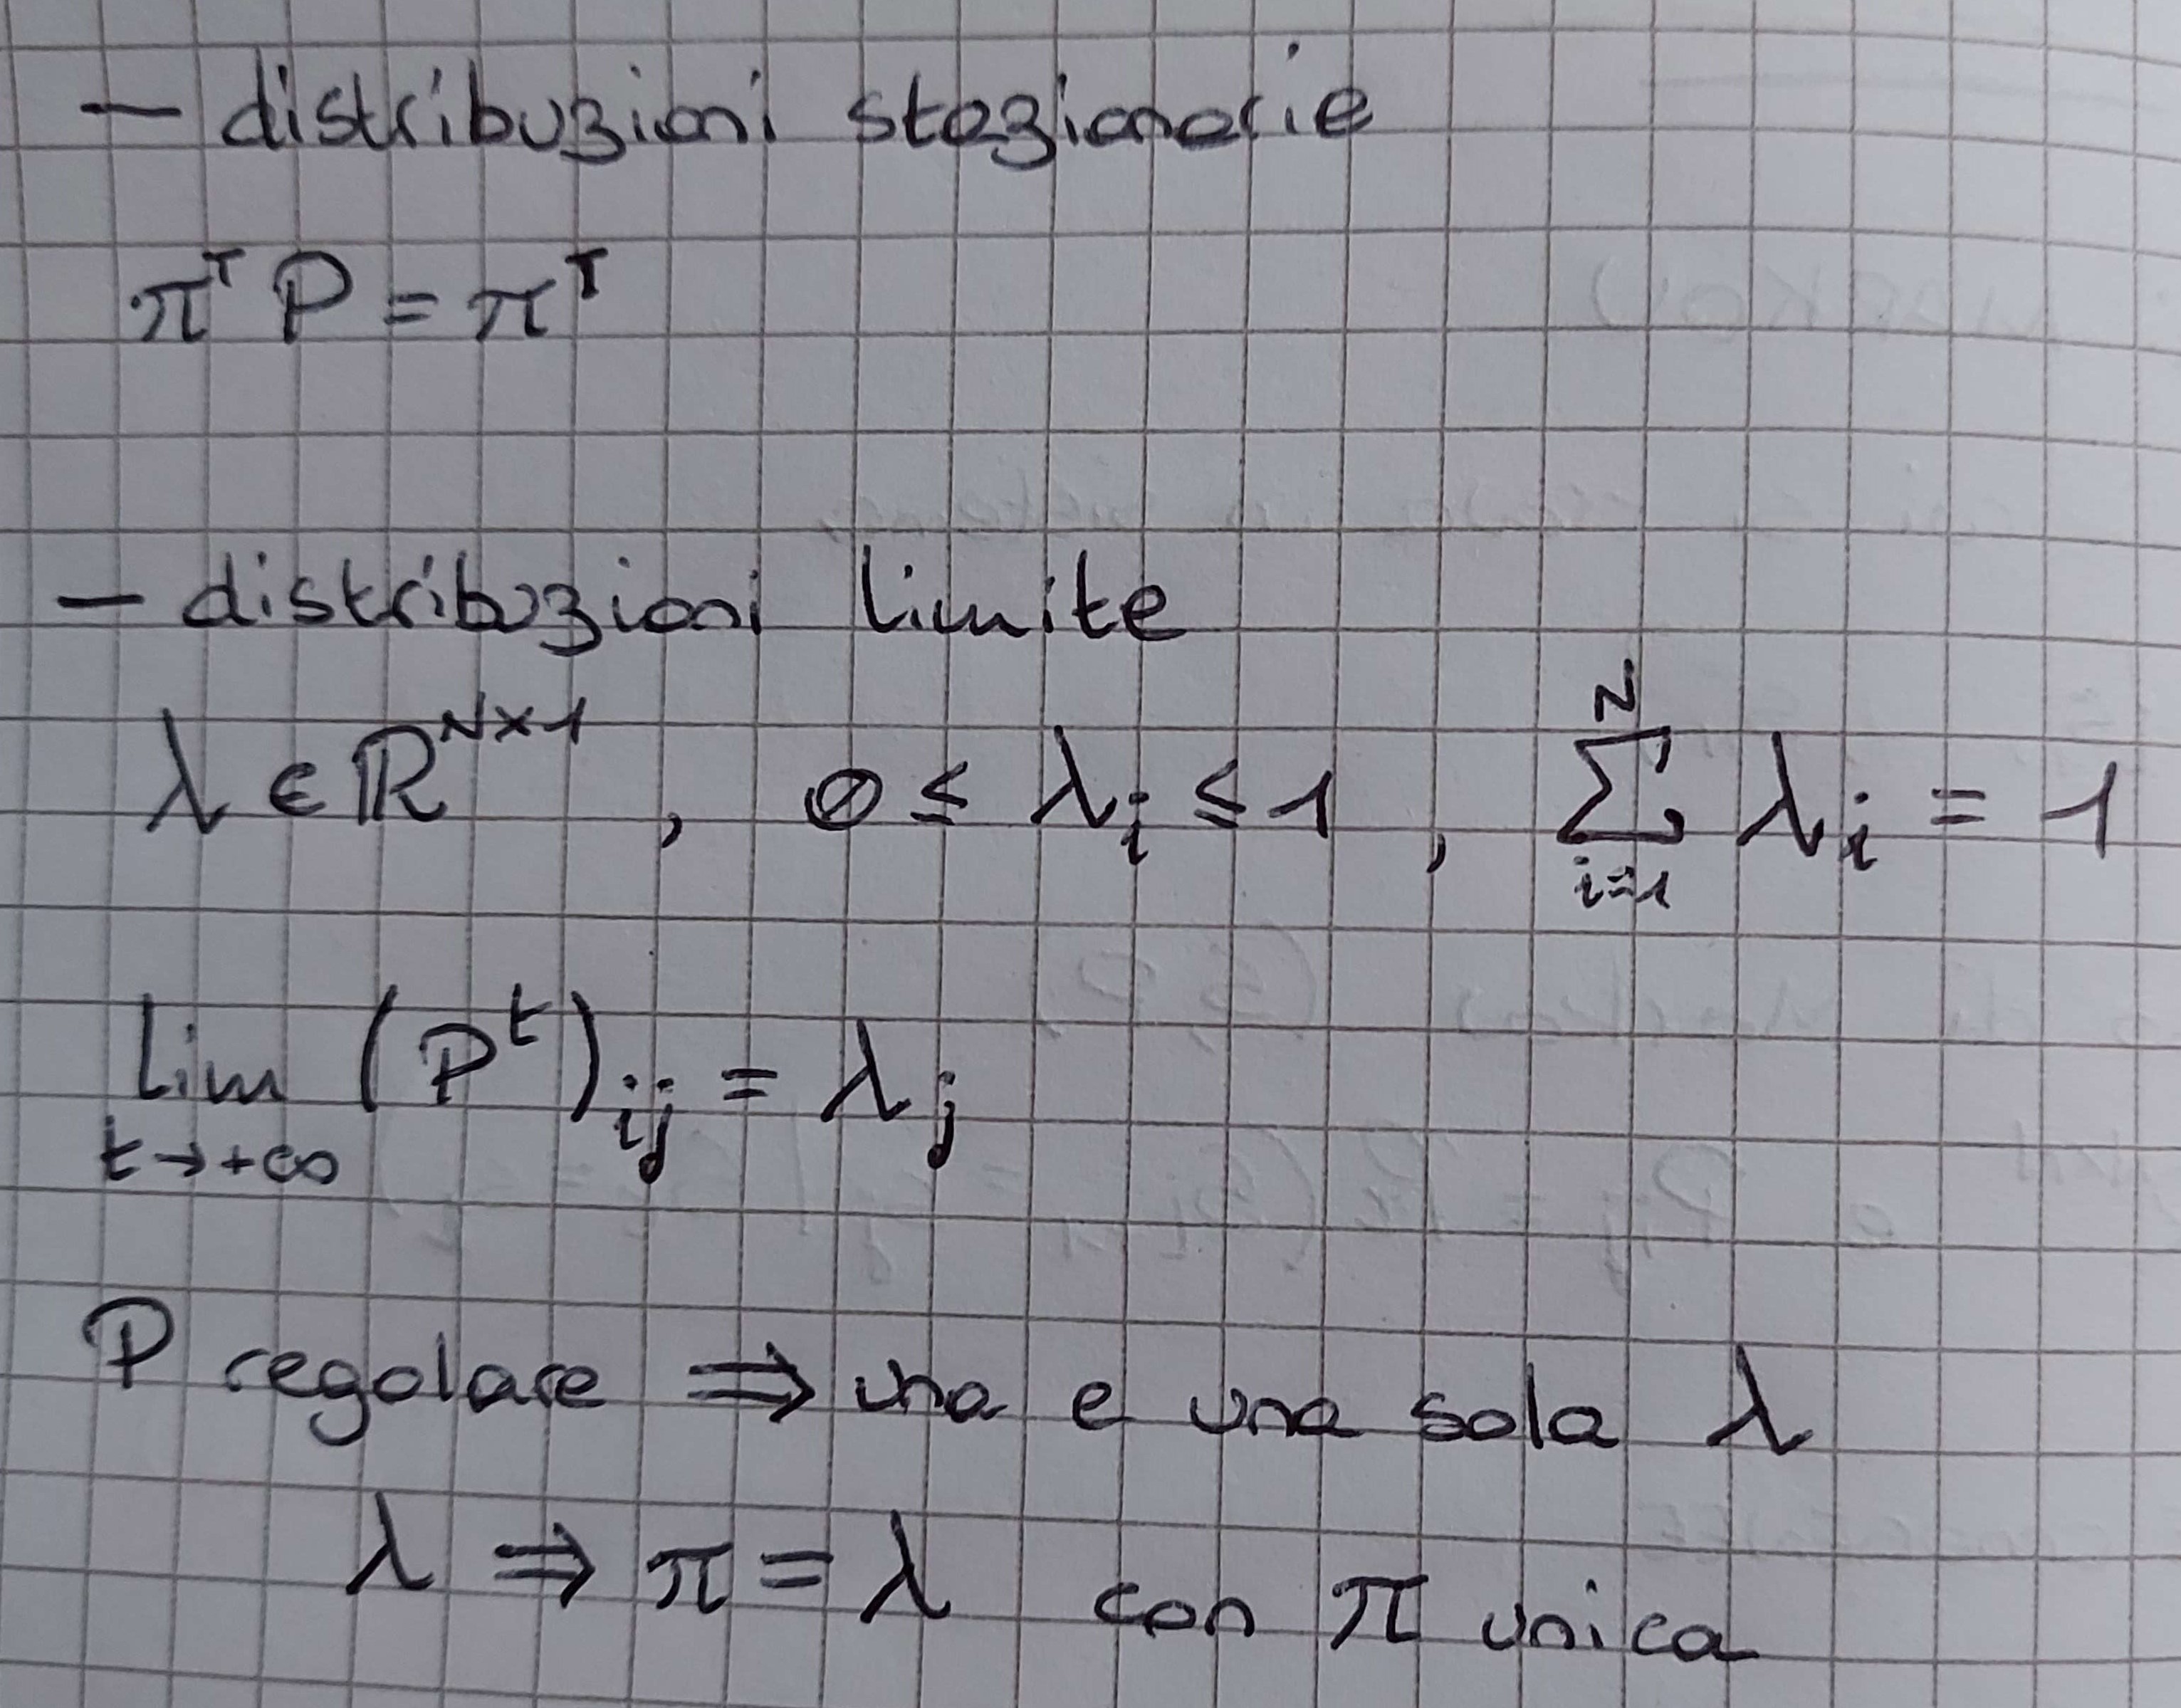 — distribuzioni stazionarie
πᵀ P = πᵀ
— distribuzioni limite
λ ∈ ℝᴺˣ¹ , 0 ≤ λᵢ ≤ 1 , ∑ᵢ₌₁ᴺ λᵢ = 1
lim t→+∞ (Pᵗ)ᵢⱼ = λⱼ
P regolare ⇒ una e una sola λ
λ ⇒ π = λ con π unica